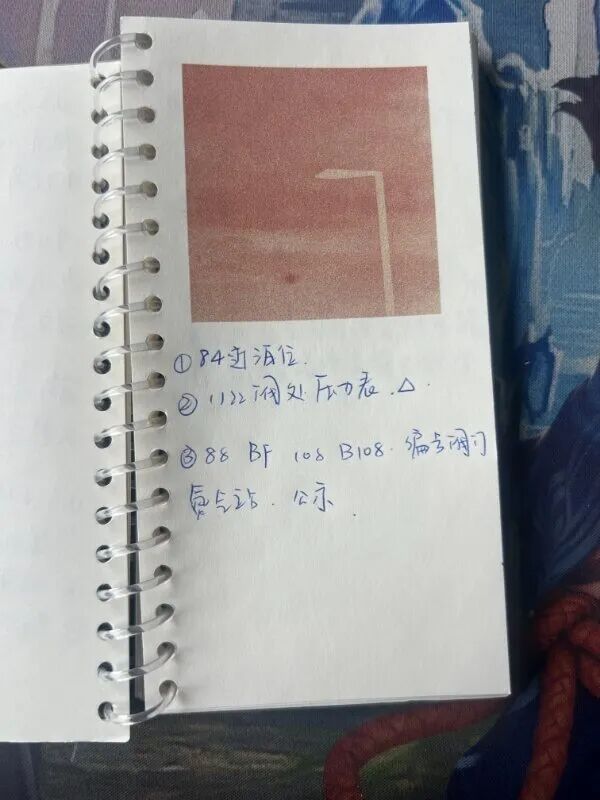 ①84 液位.
②1122阀处压力表.△.
③88 BF 108 B108. 编号阀门
公示.